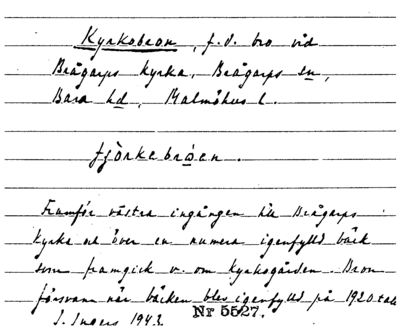 Kyrkobron, f.d. bro vid
Brågarps kyrka, Brågarps sn,
Bara hd, Malmöhus l.
fjörkebrøen.
Framför västra ingången till Brågarps
kyrka och över en numera igenfylld bäck
som framgick v. om kyrkogården. Bron
försvann när bäcken blev igenfylld på 1920-tal
I. Ingers 1943.
Nr 5527.